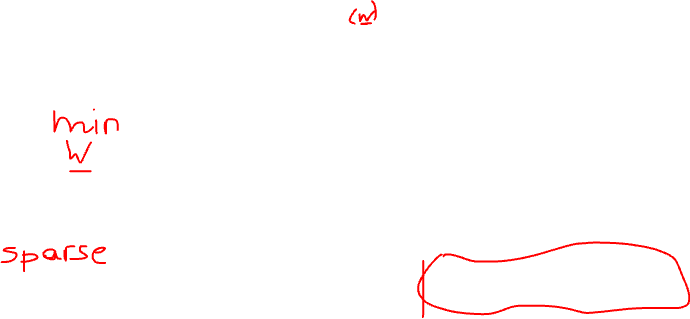 (w)
min
w
sparse